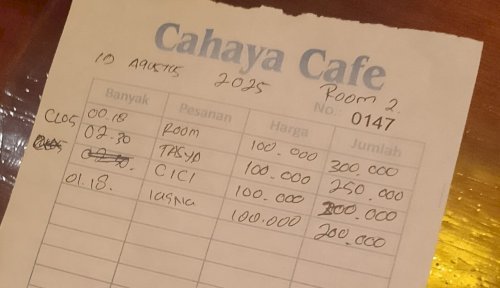 Cahaya Cafe
10 AGUSTUS 2025 ROOM 2
No.: 0147
Banyak Pesanan Harga Jumlah
00.18 ROOM 100.000 300.000
CLOS 02.30 TASYA 100.000 250.000
02.30 CICI 100.000 200.000
01.18. 100.000 200.000